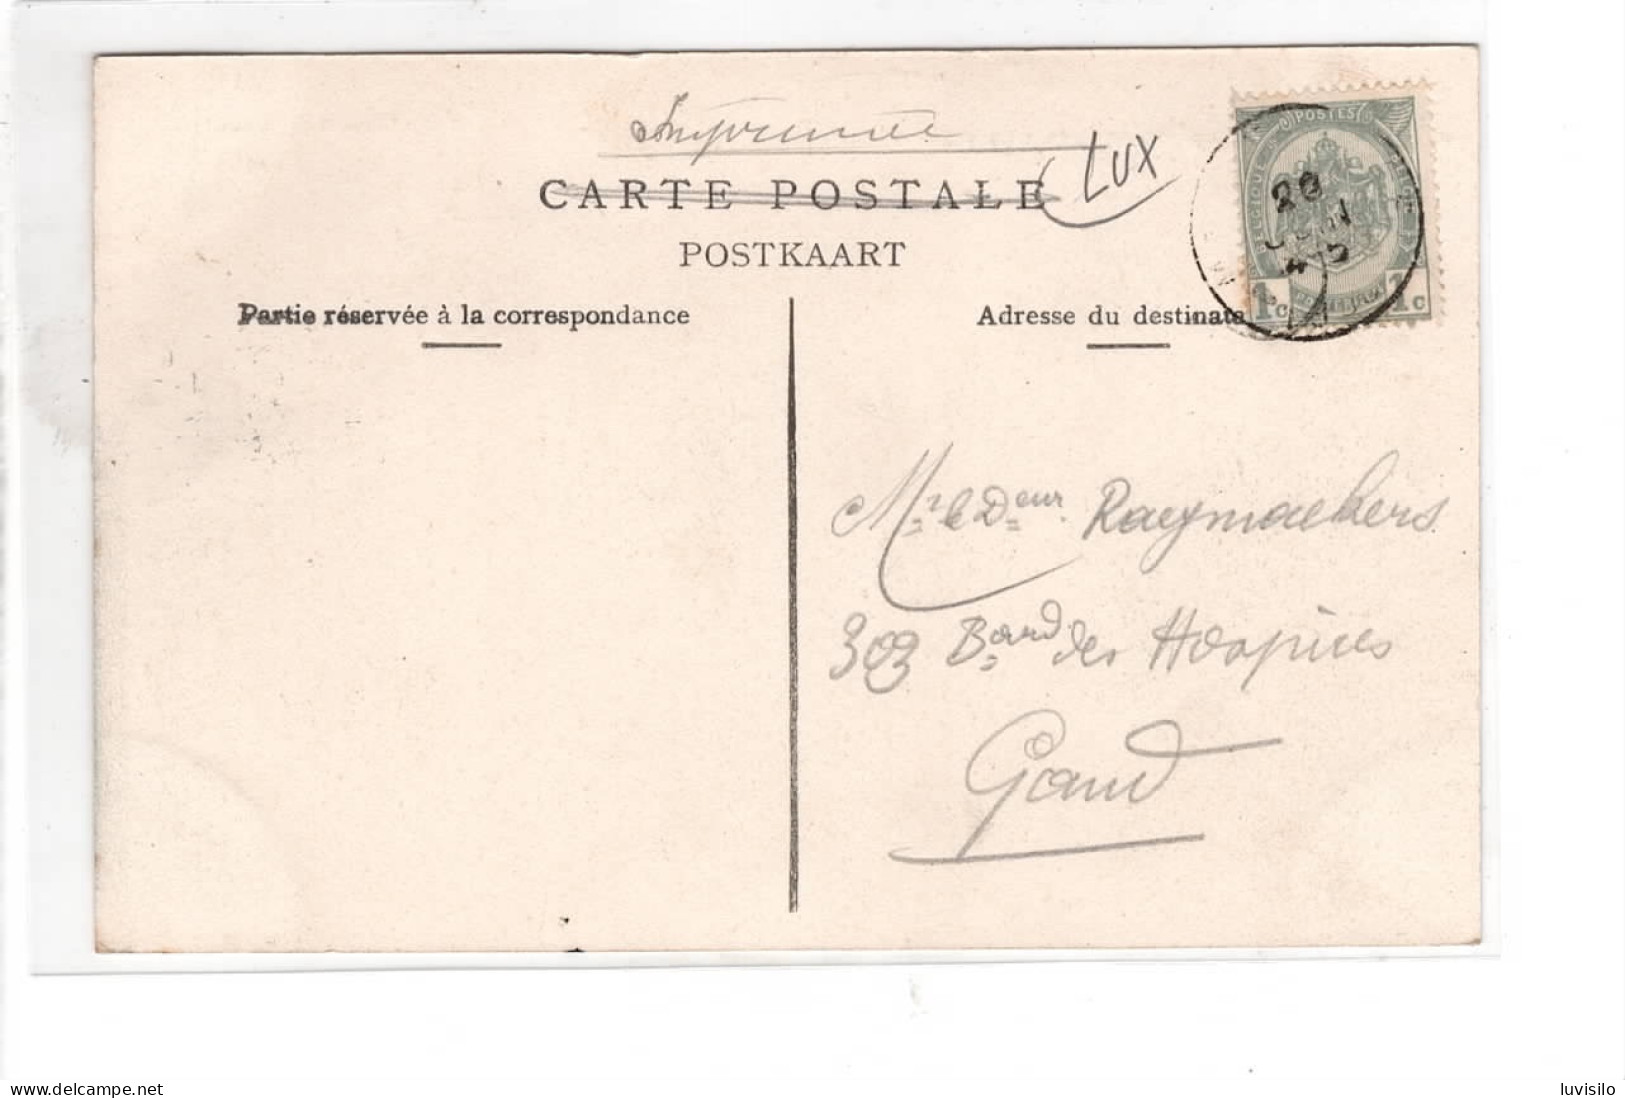 Imprimée
CARTE POSTALE
LUX
POSTKAART
Partie réservée à la correspondance
Adresse du destinata
POSTES
BELGIQUE
1c
1c
20
JUIN
Mr le Deur Raeymaekers
303 Bard des Hospices
Gand
www.delcampe.net
luvisilo